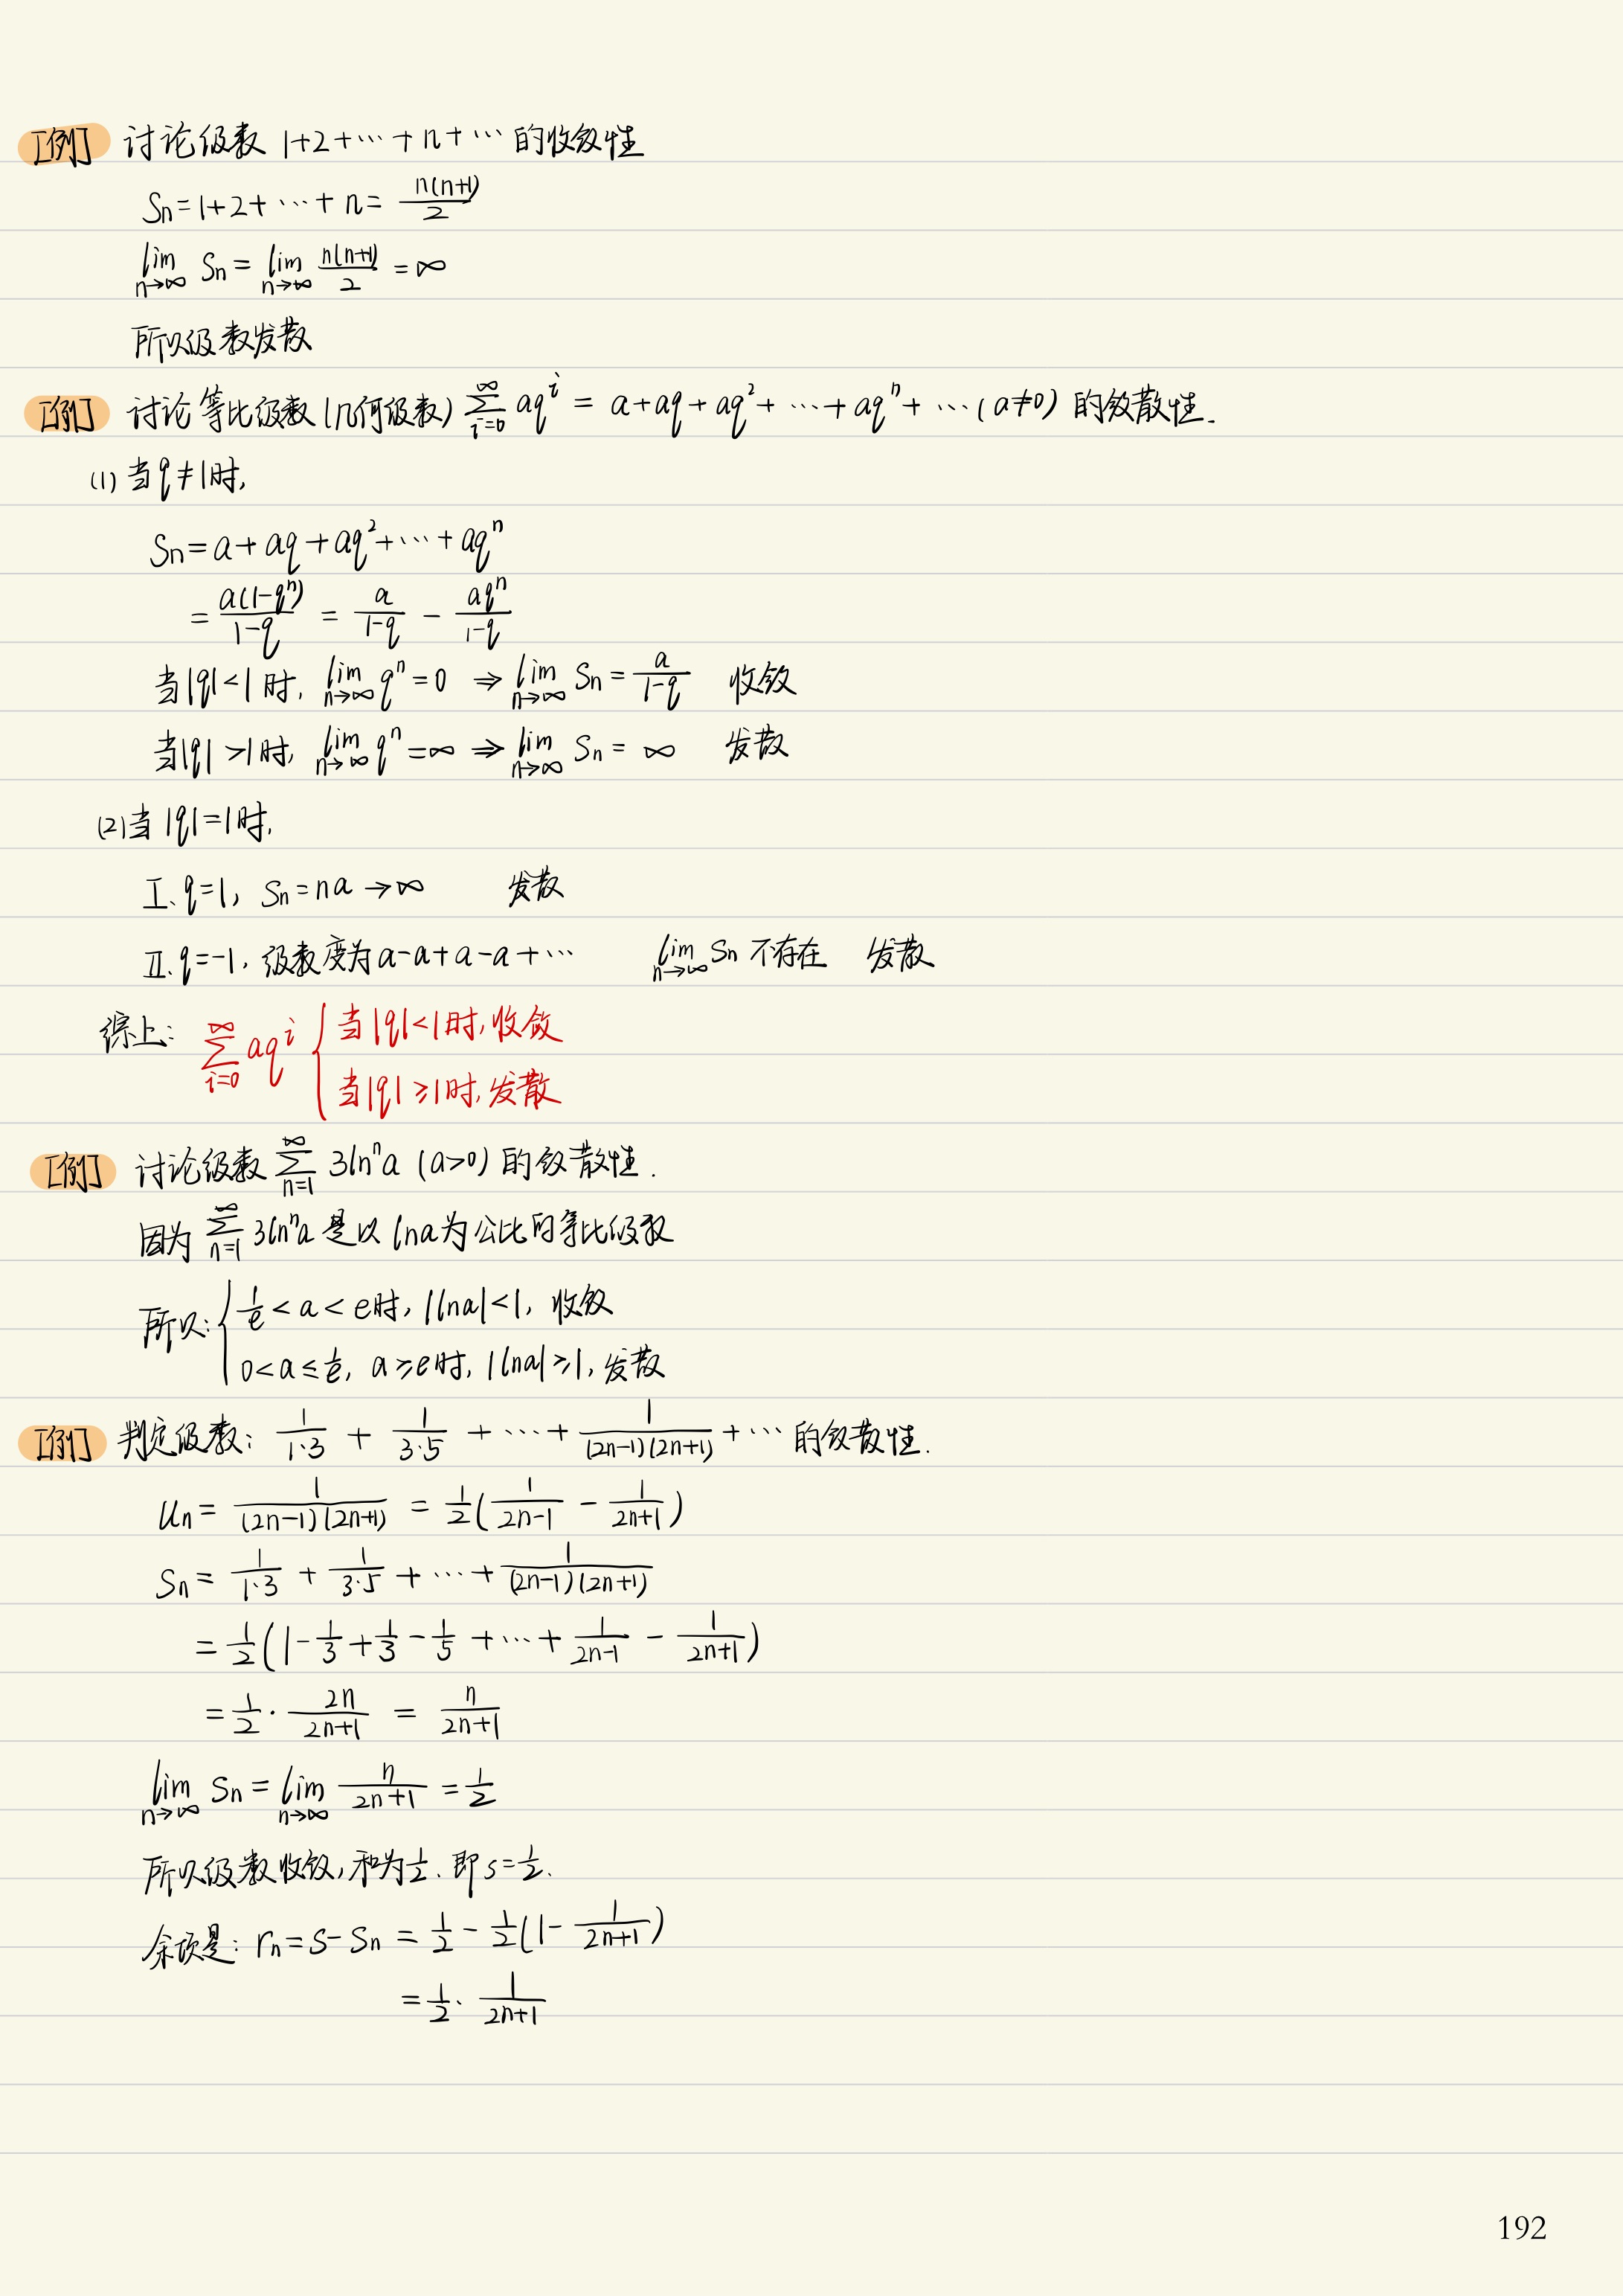 [例] 讨论级数 1+2+⋯+n+⋯ 的收敛性
Sn=1+2+⋯+n= n(n+1)/2
lim(n→∞) Sn = lim(n→∞) n(n+1)/2 = ∞
所以级数发散
[例] 讨论等比级数(几何级数) ∑(i=0→∞) aq^i = a+aq+aq²+⋯+aq^n+⋯(a≠0) 的敛散性.
(1) 当q≠1时,
Sn=a+aq+aq²+⋯+aq^n
= a(1-q^n)/(1-q) = a/(1-q) - aq^n/(1-q)
当|q|<1时, lim(n→∞) q^n=0 ⇒ lim(n→∞) Sn = a/(1-q) 收敛
当|q|>1时, lim(n→∞) q^n=∞ ⇒ lim(n→∞) Sn = ∞ 发散
(2)当|q|=1时,
Ⅰ. q=1, Sn=na→∞ 发散
Ⅱ. q=-1, 级数变为a-a+a-a+⋯ lim(n→∞) Sn 不存在 发散
综上: ∑(i=0→∞) aq^i { 当|q|<1时,收敛
当|q|≥1时,发散
[例] 讨论级数 ∑(n=1→∞) 3ln^n a (a>0) 的敛散性.
因为 ∑(n=1→∞) 3ln^n a 是以 lna为公比的等比级数
所以: { 1/e < a < e时, |lna|<1, 收敛
0<a≤1/e, a≥e时, |lna|≥1, 发散
[例] 判定级数: 1/(1·3) + 1/(3·5) + ⋯ + 1/((2n-1)(2n+1)) + ⋯ 的敛散性.
Un = 1/((2n-1)(2n+1)) = 1/2(1/(2n-1) - 1/(2n+1))
Sn = 1/(1·3) + 1/(3·5) + ⋯ + 1/((2n-1)(2n+1))
= 1/2(1-1/3+1/3-1/5+⋯+1/(2n-1) - 1/(2n+1))
= 1/2 · 2n/(2n+1) = n/(2n+1)
lim(n→∞) Sn = lim(n→∞) n/(2n+1) = 1/2
所以级数收敛,和为1/2. 即s=1/2.
余项是: rn=S-Sn = 1/2 - 1/2(1- 1/(2n+1))
= 1/2 · 1/(2n+1)
192